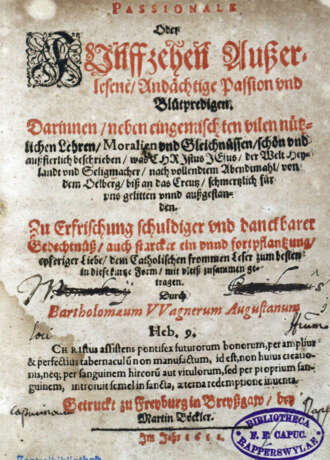 PASSIONALE
Oder
Fünffzehen Außer-
lesene/ Andächtige Passion vnd
Blütpredigen.
Darinnen/ neben eingemischten vilen nütz-
lichen Lehren/ Moralien vnd Gleichnüssen/ schön vnd
außfierlich beschrieben/ was CHRIstus JEsus/ der Welt Hey-
landt vnd Seligmacher/ nach vollendtem Abendtmahl/ von
dem Oelberg/ biß an das Creutz/ schmertzlich für
vns gelitten vnnd außgestan-
den.
Zu Erfrischung schuldiger vnd danckbarer
Gedechtnüß/ auch starcker ein vnnd fortpflantzung/
eyferiger Liebe/ dem Catholischen frommen Leser zum besten/
in diese kurtze Form/ mit fleiß zusamen ge-
tragen.
Durch
Bartholomæum VVagnerum Augustanum
Heb. 9.
CHRIstus assistens pontifex futurorum bonorum, per amplius
& perfectius tabernaculũ non manufactum, id est, non huius creatio-
nis, neq; per sanguinem hircorũ aut vitulorum, sed per proprium san-
guinem, introiuit semel in sancta, æterna redemptione inuenta.
Getruckt zu Freyburg in Breyßgaw/ bey
Martin Böckler.
Im Jahr
loci
Capucinorum
BIBLIOTHECA
F. F. CAPUC.
RAPPERSWYLAE
Zentralbibliothek